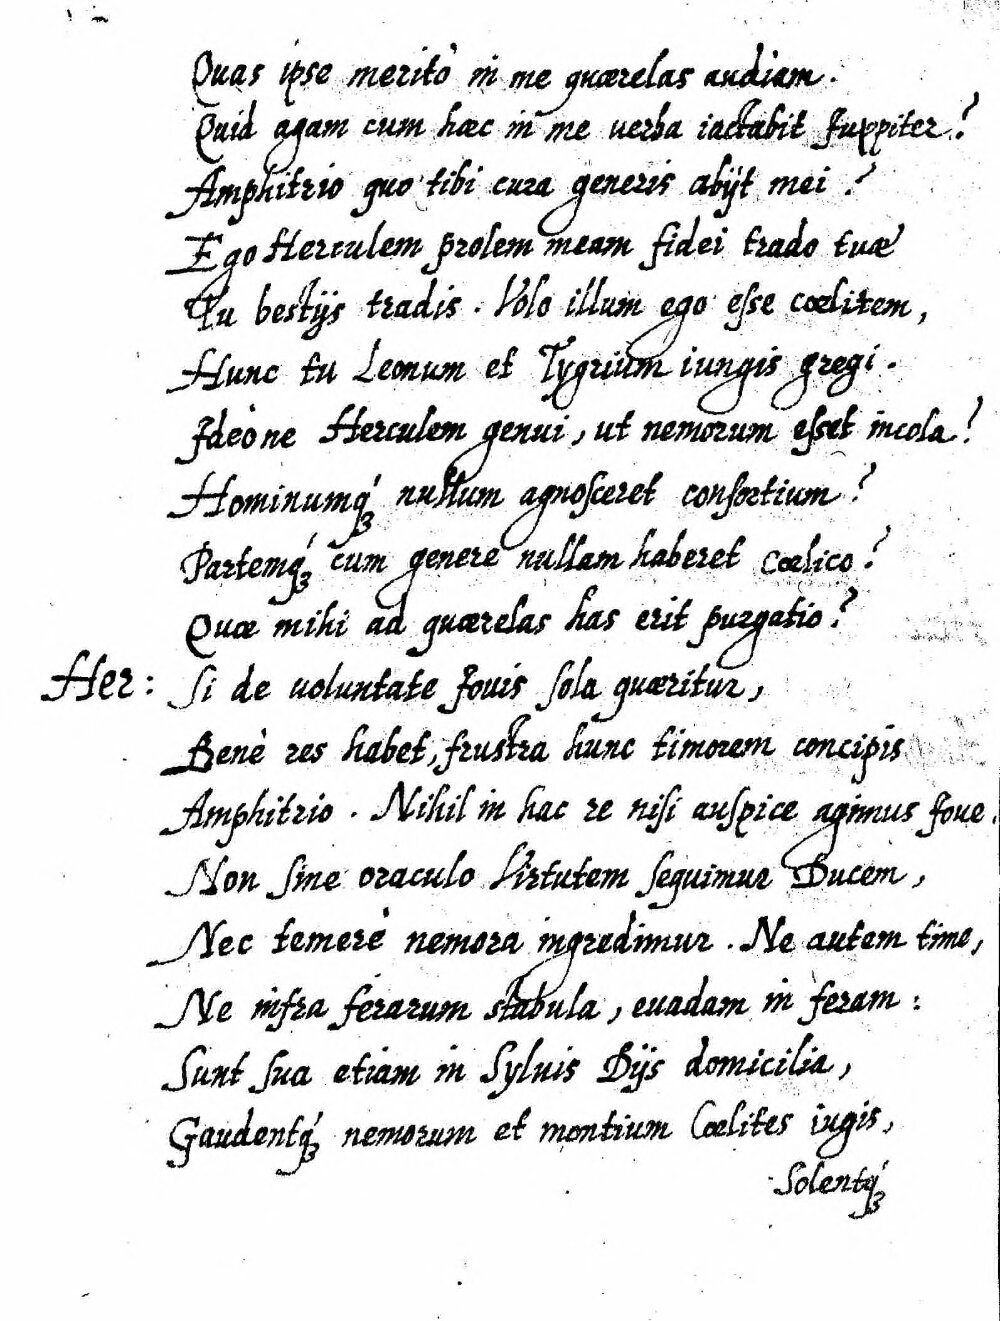 Quas ipse meritò in me quærelas audiam.
Quid agam cum hæc in me uerba iactabit Juppiter?
Amphitrio quo tibi cura generis abijt mei?
Ego Herculem prolem meam fidei trado tuæ
Tu bestijs tradis. Volo illum ego esse cœlitem,
Hunc tu Leonum et Tygrium iungis gregi.
Jdeòne Herculem genui, ut nemorum esset incola?
Hominumq́ꝫ nullum agnosceret consortium?
Partemq́ꝫ cum genere nullam haberet cœlico?
Quæ mihi ad quærelas has erit purgatio?
Her: Si de uoluntate Jouis sola quæritur,
Benè res habet, frustra hunc timorem concipis
Amphitrio. Nihil in hac re nisi auspice agimus Joue.
Non sine oraculo Virtutem sequimur Ducem,
Nec temerè nemora ingredimur. Ne autem time,
Ne infra ferarum stabula, euadam in feram:
Sunt sua etiam in Syluis Dijs domicilia,
Gaudentq́ꝫ nemorum et montium Cœlites iugis,
Solentq́ꝫ